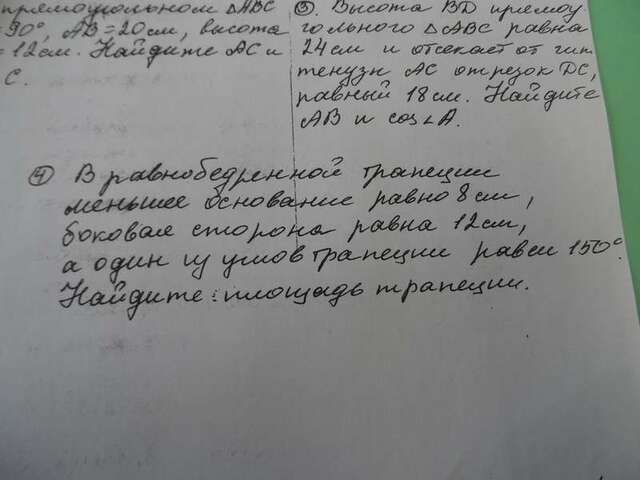 прямоугольном △ABC
= 90°, AB = 20 см, высота
= 12 см. Найдите AC и
C.
③. Высота BD прямоу
гольного △ABC равна
24 см и отсекает от гип
тенузы AC отрезок DC,
равный 18 см. Найдите
AB и cos∠A.
④ В равнобедренной трапеции
меньшее основание равно 8 см,
боковая сторона равна 12 см,
а один из углов трапеции равен 150°.
Найдите: площадь трапеции.